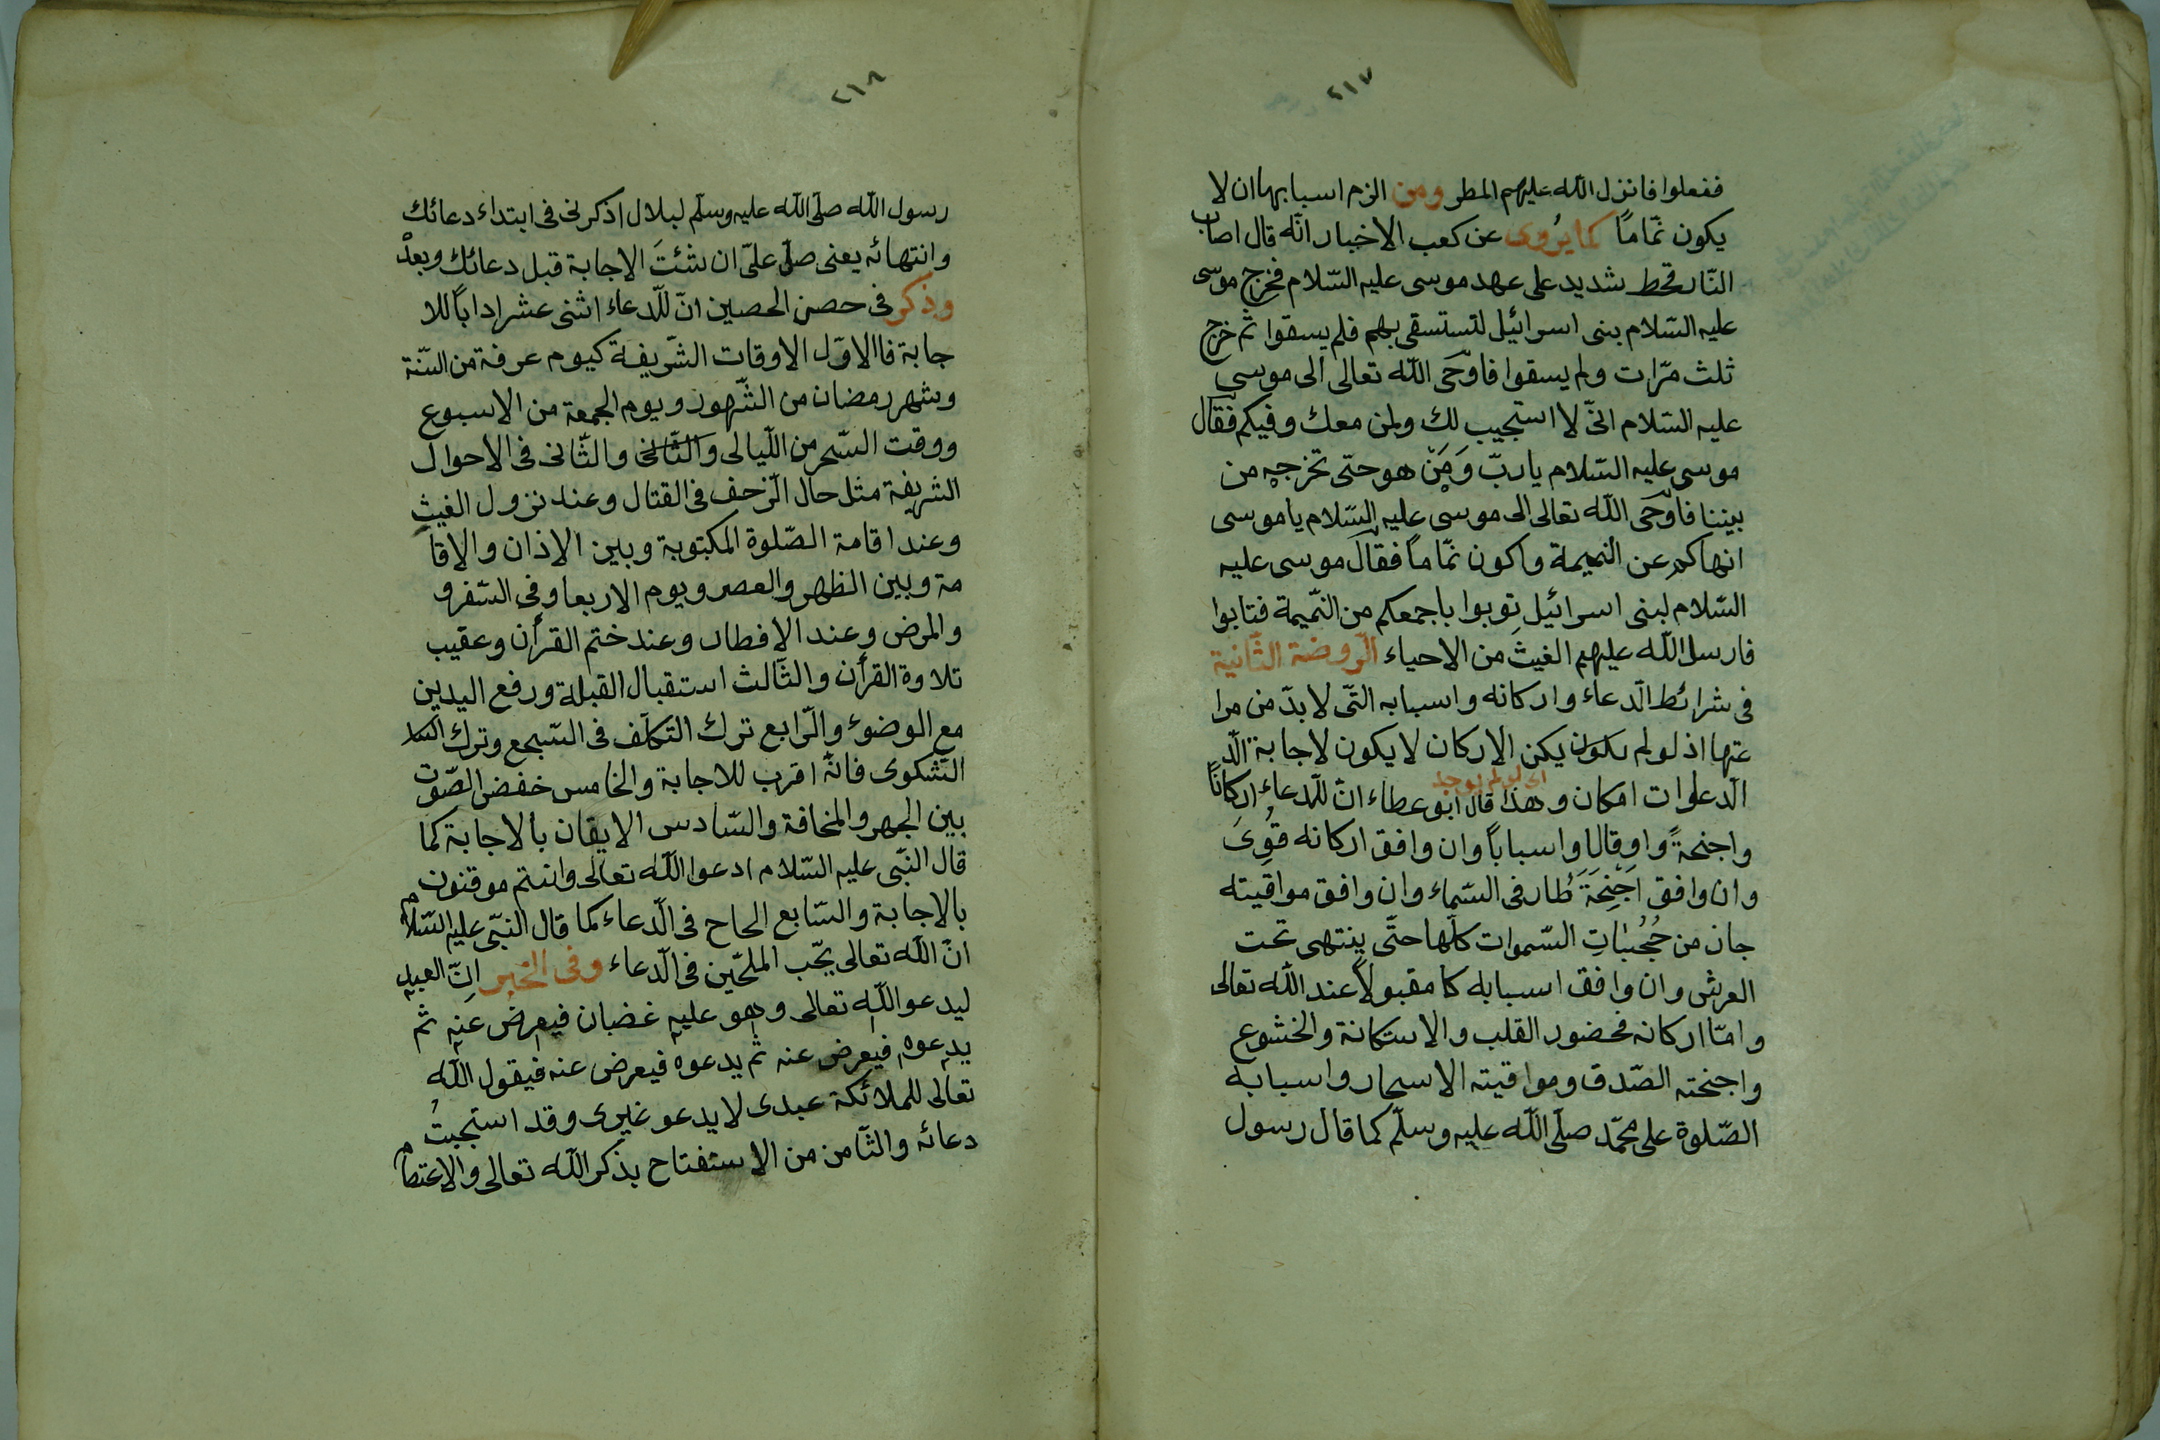 ٢١٧
ففعلوا فانزل اللّه عليهم المطر ومن الزم اسبابها ان لا
يكون نمّامًا كما يُروى عن كعب الاخبار انّه قال اصاب
النّار قحط شديد على عهد موسى عليه السّلام فخرج موسى
عليه السّلام بنى اسرائيل لتستسقى بهم فلم يسقوا ثم خرج
ثلث مرّات ولم يسقوا فاَوحَى اللّه تعالى الى موسى
عليه السّلام انىّ لا استجيب لك ولمن معك وفيكم فقال
موسى عليه السّلام يا ربّ وَمَنْ هو حتى تخرجه من
بيننا فاَوحَى اللّه تعالى الى موسى عليه السّلام يا موسى
انهاكم عن النميمة واكون نمّامًا فقال موسى عليه
السّلام لبنى اسرائيل توبوا باجمعكم من النّميمة فتابوا
فارسل اللّه عليهم الغيث من الاحياء الرّوضة الثّانية
فى شرائط الدّعاء واركانه واسبابه التّى لا بدّ من مرا
عتها اذ لو لم يكن الاركان لا يكون لاجابة الدّ
اى لو لم يوجد
الدّعوات امكان وهذا قال ابو عطاء انّ للدّعاء اركانًا
واجنحةً واوقاتا واسبابًا وان وافق اركانه قَوِىَ
وان وافق اَجْنِحَةَ طار فى السّماء وان وافق مواقيته
جان من حُجُبَاتِ السّموات كلّها حتّى ينتهى تحت
العرش وان وافق اسبابه كا مقبولًا عند اللّه تعالى
وامّا اركانه فحضور القلب والاستكانة والخشوع
واجنحته الصّدق ومواقيته الاسحار واسبابه
الصّلوة على محمّد صلّى اللّه عليه وسلّم كما قال رسول
٢١٨
رسول اللّه صلّى اللّه عليه وسلّم لبلال اذكرنى فى ابتداء دعائك
وانتهائه يعنى صلّ علىّ ان شئتَ الاجابة قبل دعائك وبعدْ
وذكر فى حصن الحصين انّ للدّعاء اثنى عشر ادابًا للا
جابة فالاوّل الاوقات الشّريفة كيوم عرفة من السّنة
وشهر رمضان من الشّهور ويوم الجمعة من الاسبوع
ووقت السّحر من اللّيالى والثّانى والثّانى فى الاحوال
الشريفة مثل حال الزّحف فى القتال وعند نزول الغيث
وعند اقامة الصّلوة المكتوبة وبين الاذان والاقا
مة وبين الظهر والعصر ويوم الاربعا وفى السّفر و
والمرض وعند الافطار وعند ختم القرأن وعقيب
تلاوة القرأن والثّالث استقبال القبلة ورفع اليدين
مع الوضوء والرّابع ترك التكلّف فى السّجع وترك
التّشكوى فانّه اقرب للاجابة والخامس خفض الصّوت
بين الجهر والمخافة والسّادس الايقان بالاجابة كما
قال النّبى عليه السّلام ادعوا اللّه تعالى وانتم موقنون
بالاجابة والسّابع الحاح فى الدّعاء كما قال النّبى عليه السّلام
انّ اللّه تعالى يحّب الملحّين فى الدّعاء وفى الخبر انّ العبد
ليدعو اللّه تعالى وهو عليه غضبان فيعرض عنه ثم
يدعوه فيعرض عنه ثم يدعوه فيعرض عنه فيقول اللّه
تعالى للملائكة عبدى لا يدعو غيرى وقد استجبتُ
دعائه والثّامن من الاستفتاح بذكر اللّه تعالى والاعتصام